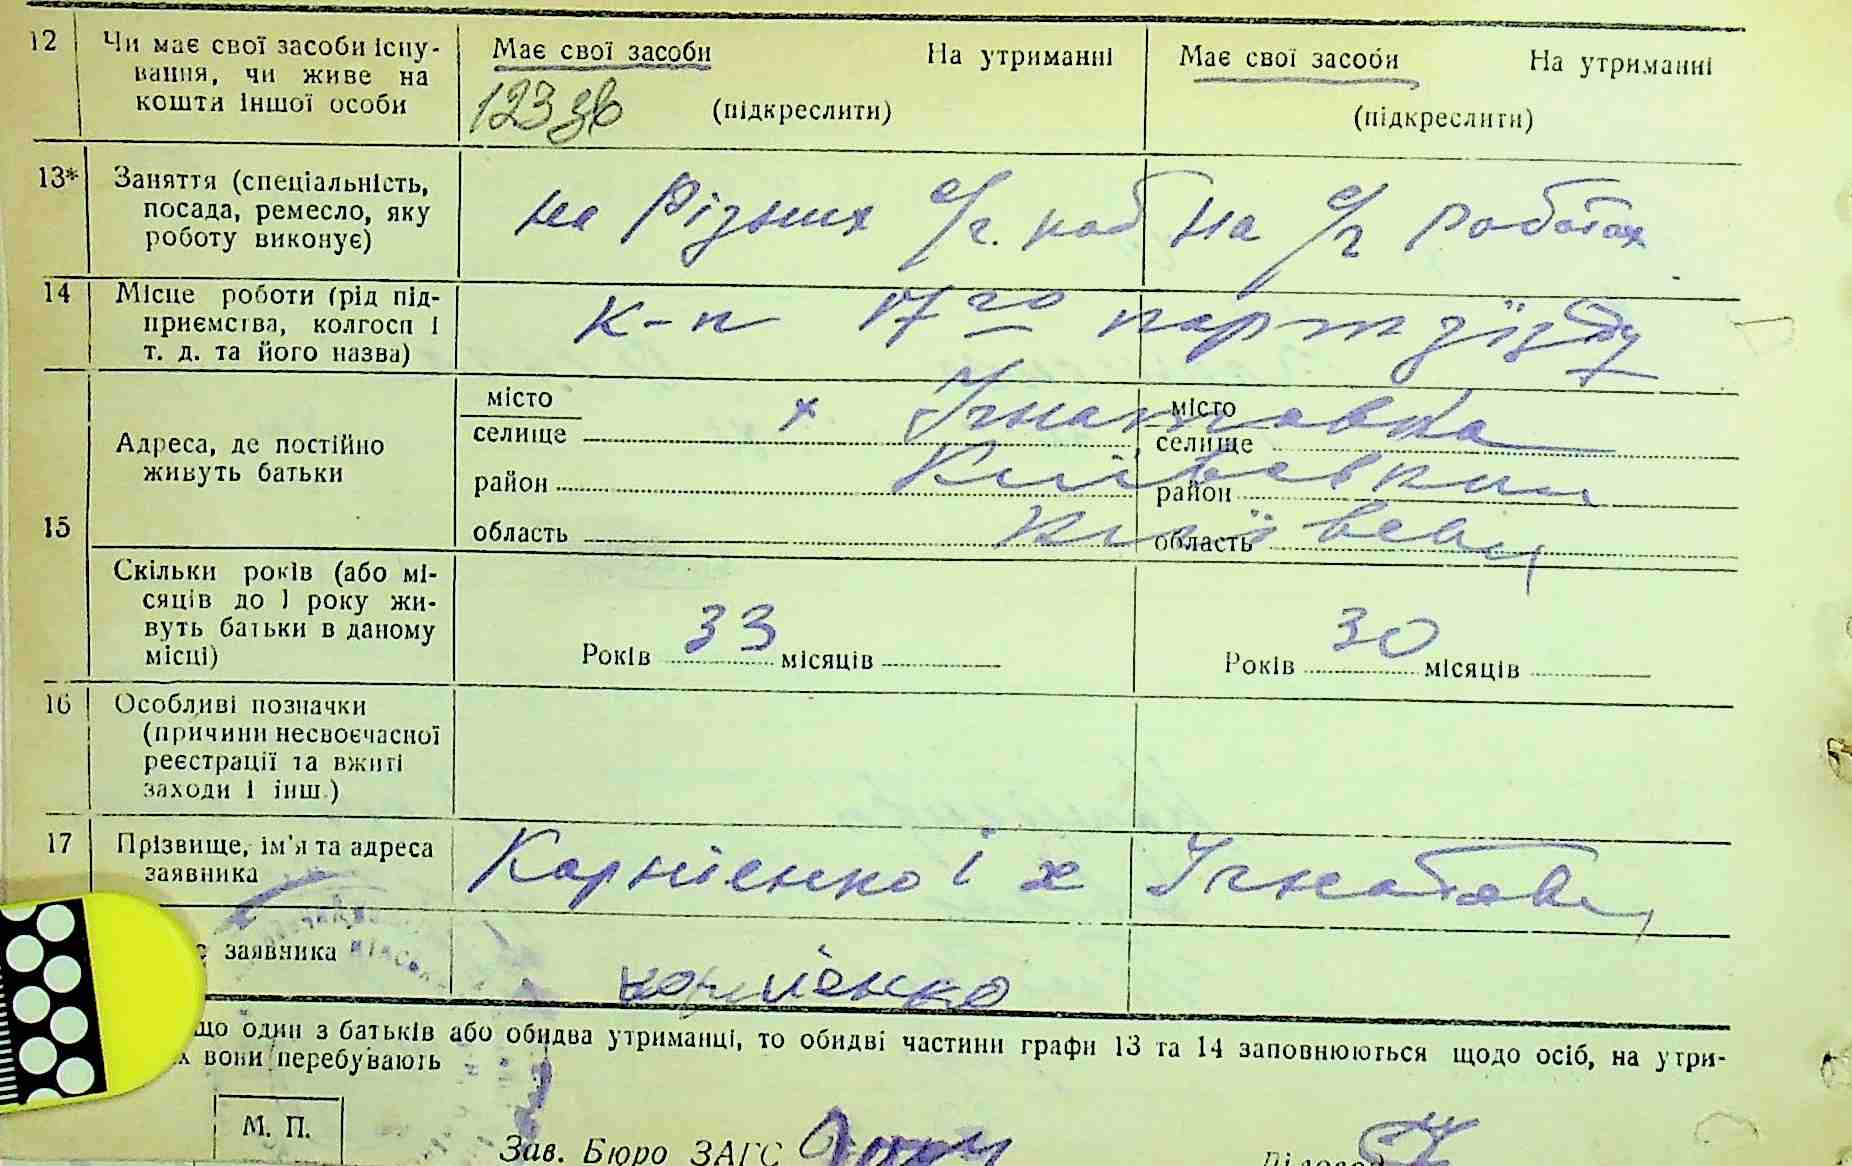 12 Чи має свої засоби існу-
вання, чи живе на
кошти іншої особи
Має свої засоби На утриманні
(підкреслити)
Має свої засоби На утриманні
(підкреслити)
123 зв
13* Заняття (спеціальність,
посада, ремесло, яку
роботу виконує)
на Різних с/г. роб
на с/г роботах
14 Місце роботи (рід під-
приємства, колгосп і
т. д. та його назва)
к-п 17го партзїзду
15
Адреса, де постійно
живуть батьки
місто
селище х Ігнатовка
район Київський
область
місто
селище
район
область
Скільки років (або мі-
сяців до 1 року жи-
вуть батьки в даному
місці)
Років 33 місяців
Років 30 місяців
16 Особливі позначки
(причини несвоєчасної
реєстрації та вжиті
заходи і інш.)
17 Прізвище, ім'я та адреса
заявника
Карнієнко і х Ігнатовц
заявника
корнієнко
що один з батьків або обидва утриманці, то обидві частини графи 13 та 14 заповнюються щодо осіб, на утри-
х вони перебувають
М. П.
Зав. Бюро ЗАГС
Діловод